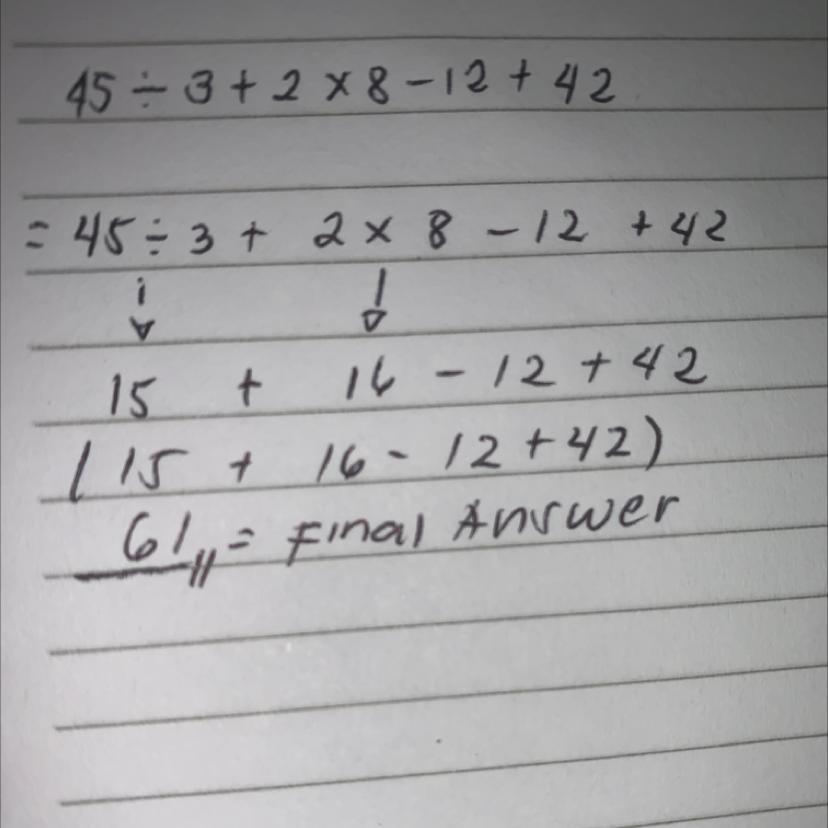 45 ÷ 3 + 2 × 8 - 12 + 42
= 45 ÷ 3 + 2 × 8 - 12 + 42
15 + 16 - 12 + 42
(15 + 16 - 12 + 42)
61,, = Final Answer